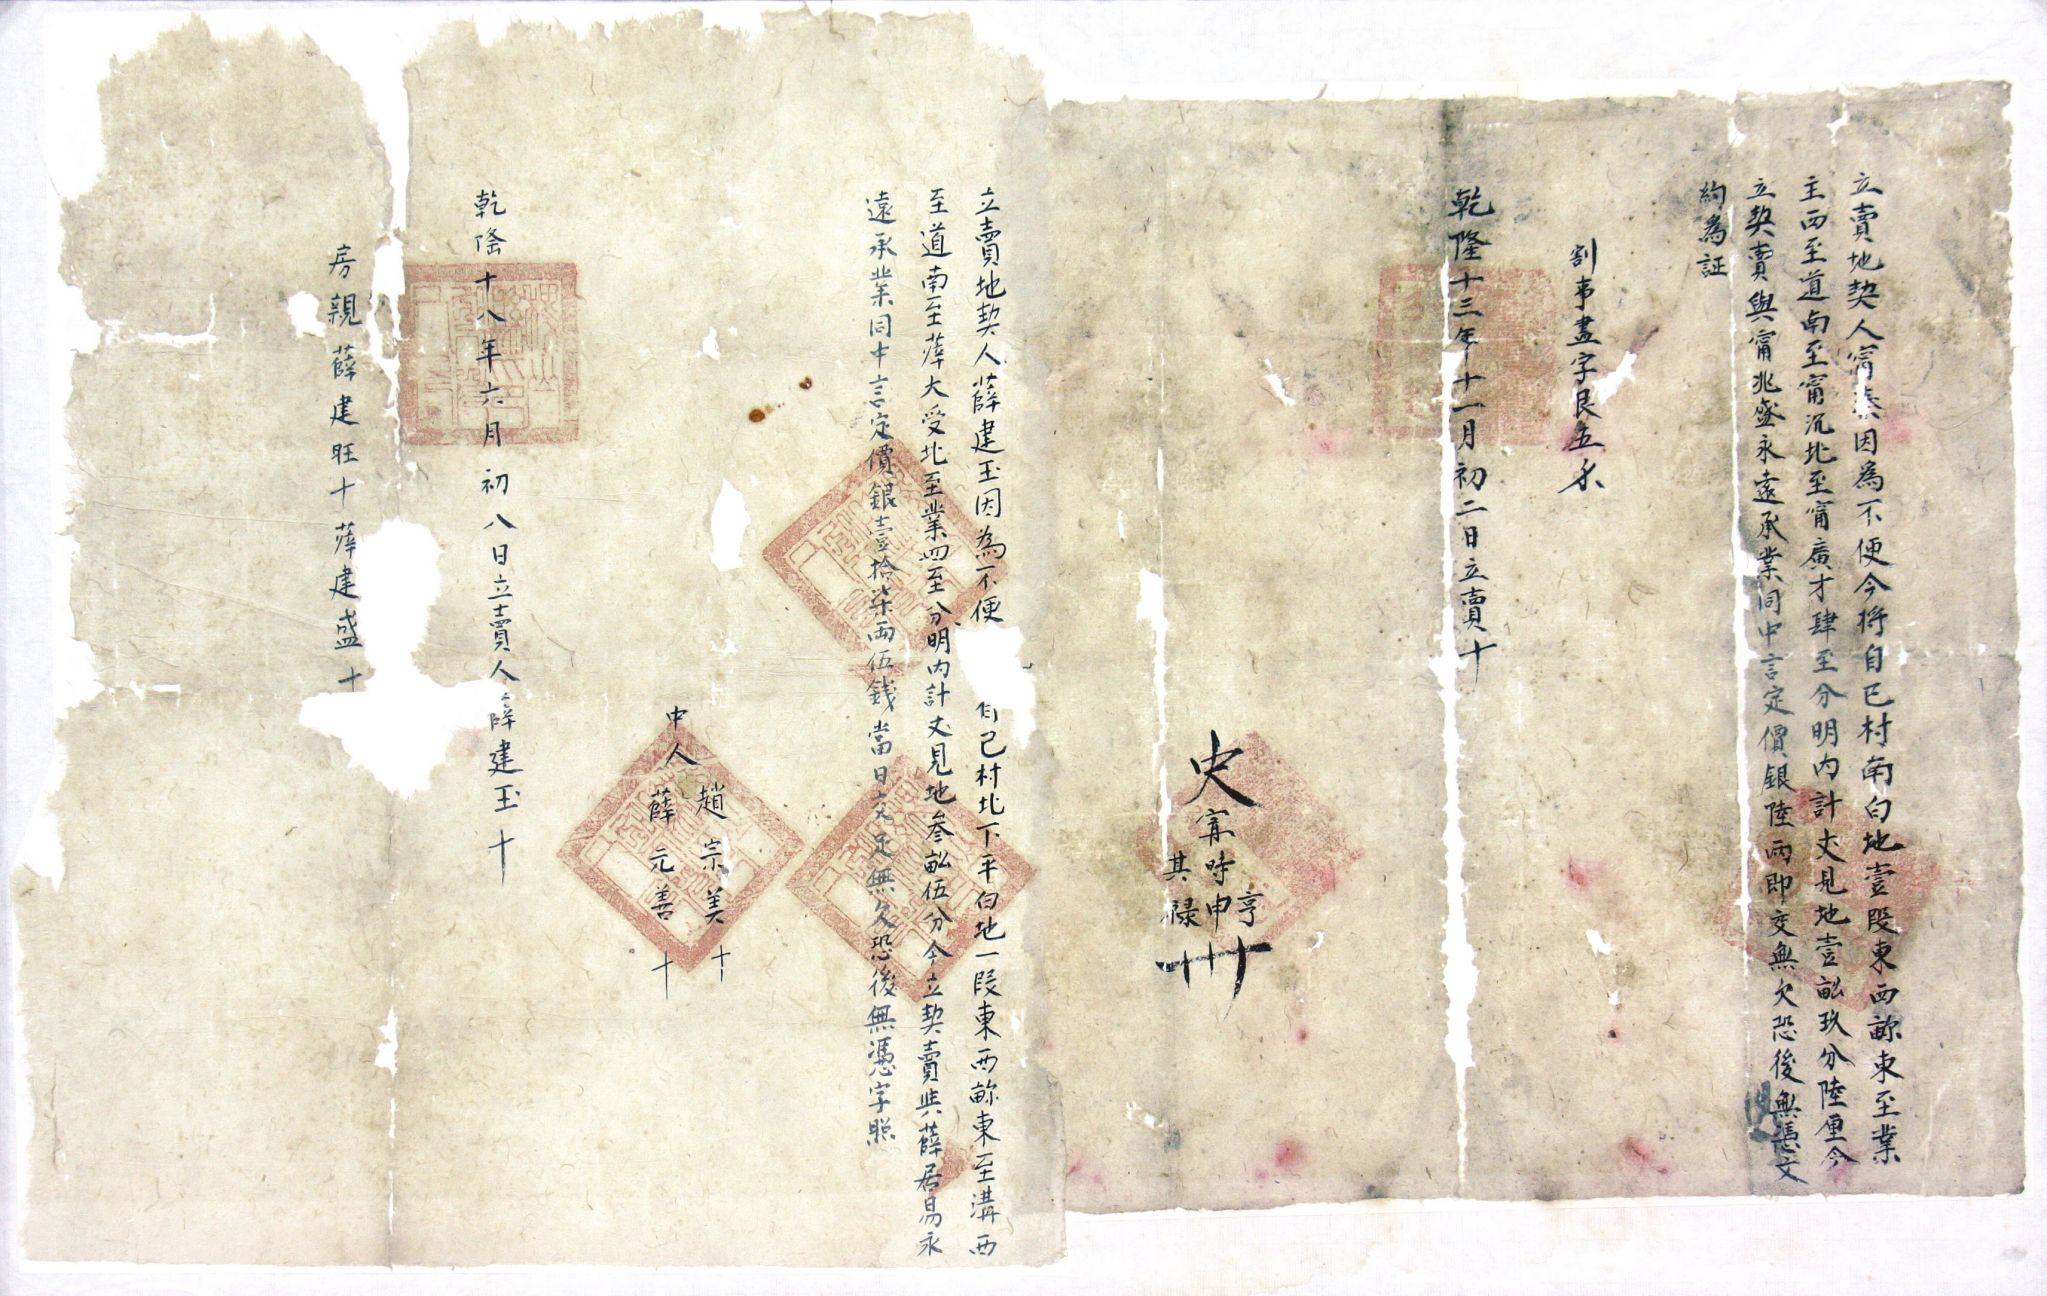 立賣地契人甯泰因為不便今将自己村南白地壹段東西畛東至業
主西至道南至甯沉北至甯廣才肆至分明内計丈見地壹畝玖分陸厘今
立契賣與甯兆盛永遠承業同中言定價銀陸两即交無欠恐後無憑文
約為証
割事畫字艮五
乾隆十三年十一月初二日立賣十
史
甯時亨
申
其禄
立賣地契人薛建玉因為不便 自己村北下平白地一段東西畛東至溝西
至道南至薛大受北至業四至分明内計丈見地叁畝伍分今立契賣與薛居易永
遠承業同中言定價銀壹拾柒兩伍錢當日交足無欠恐後無憑字照
中人 趙宗美十
薛元善十
乾隆十八年六月初八日立賣人薛建玉十
房親薛建旺十薛建盛十